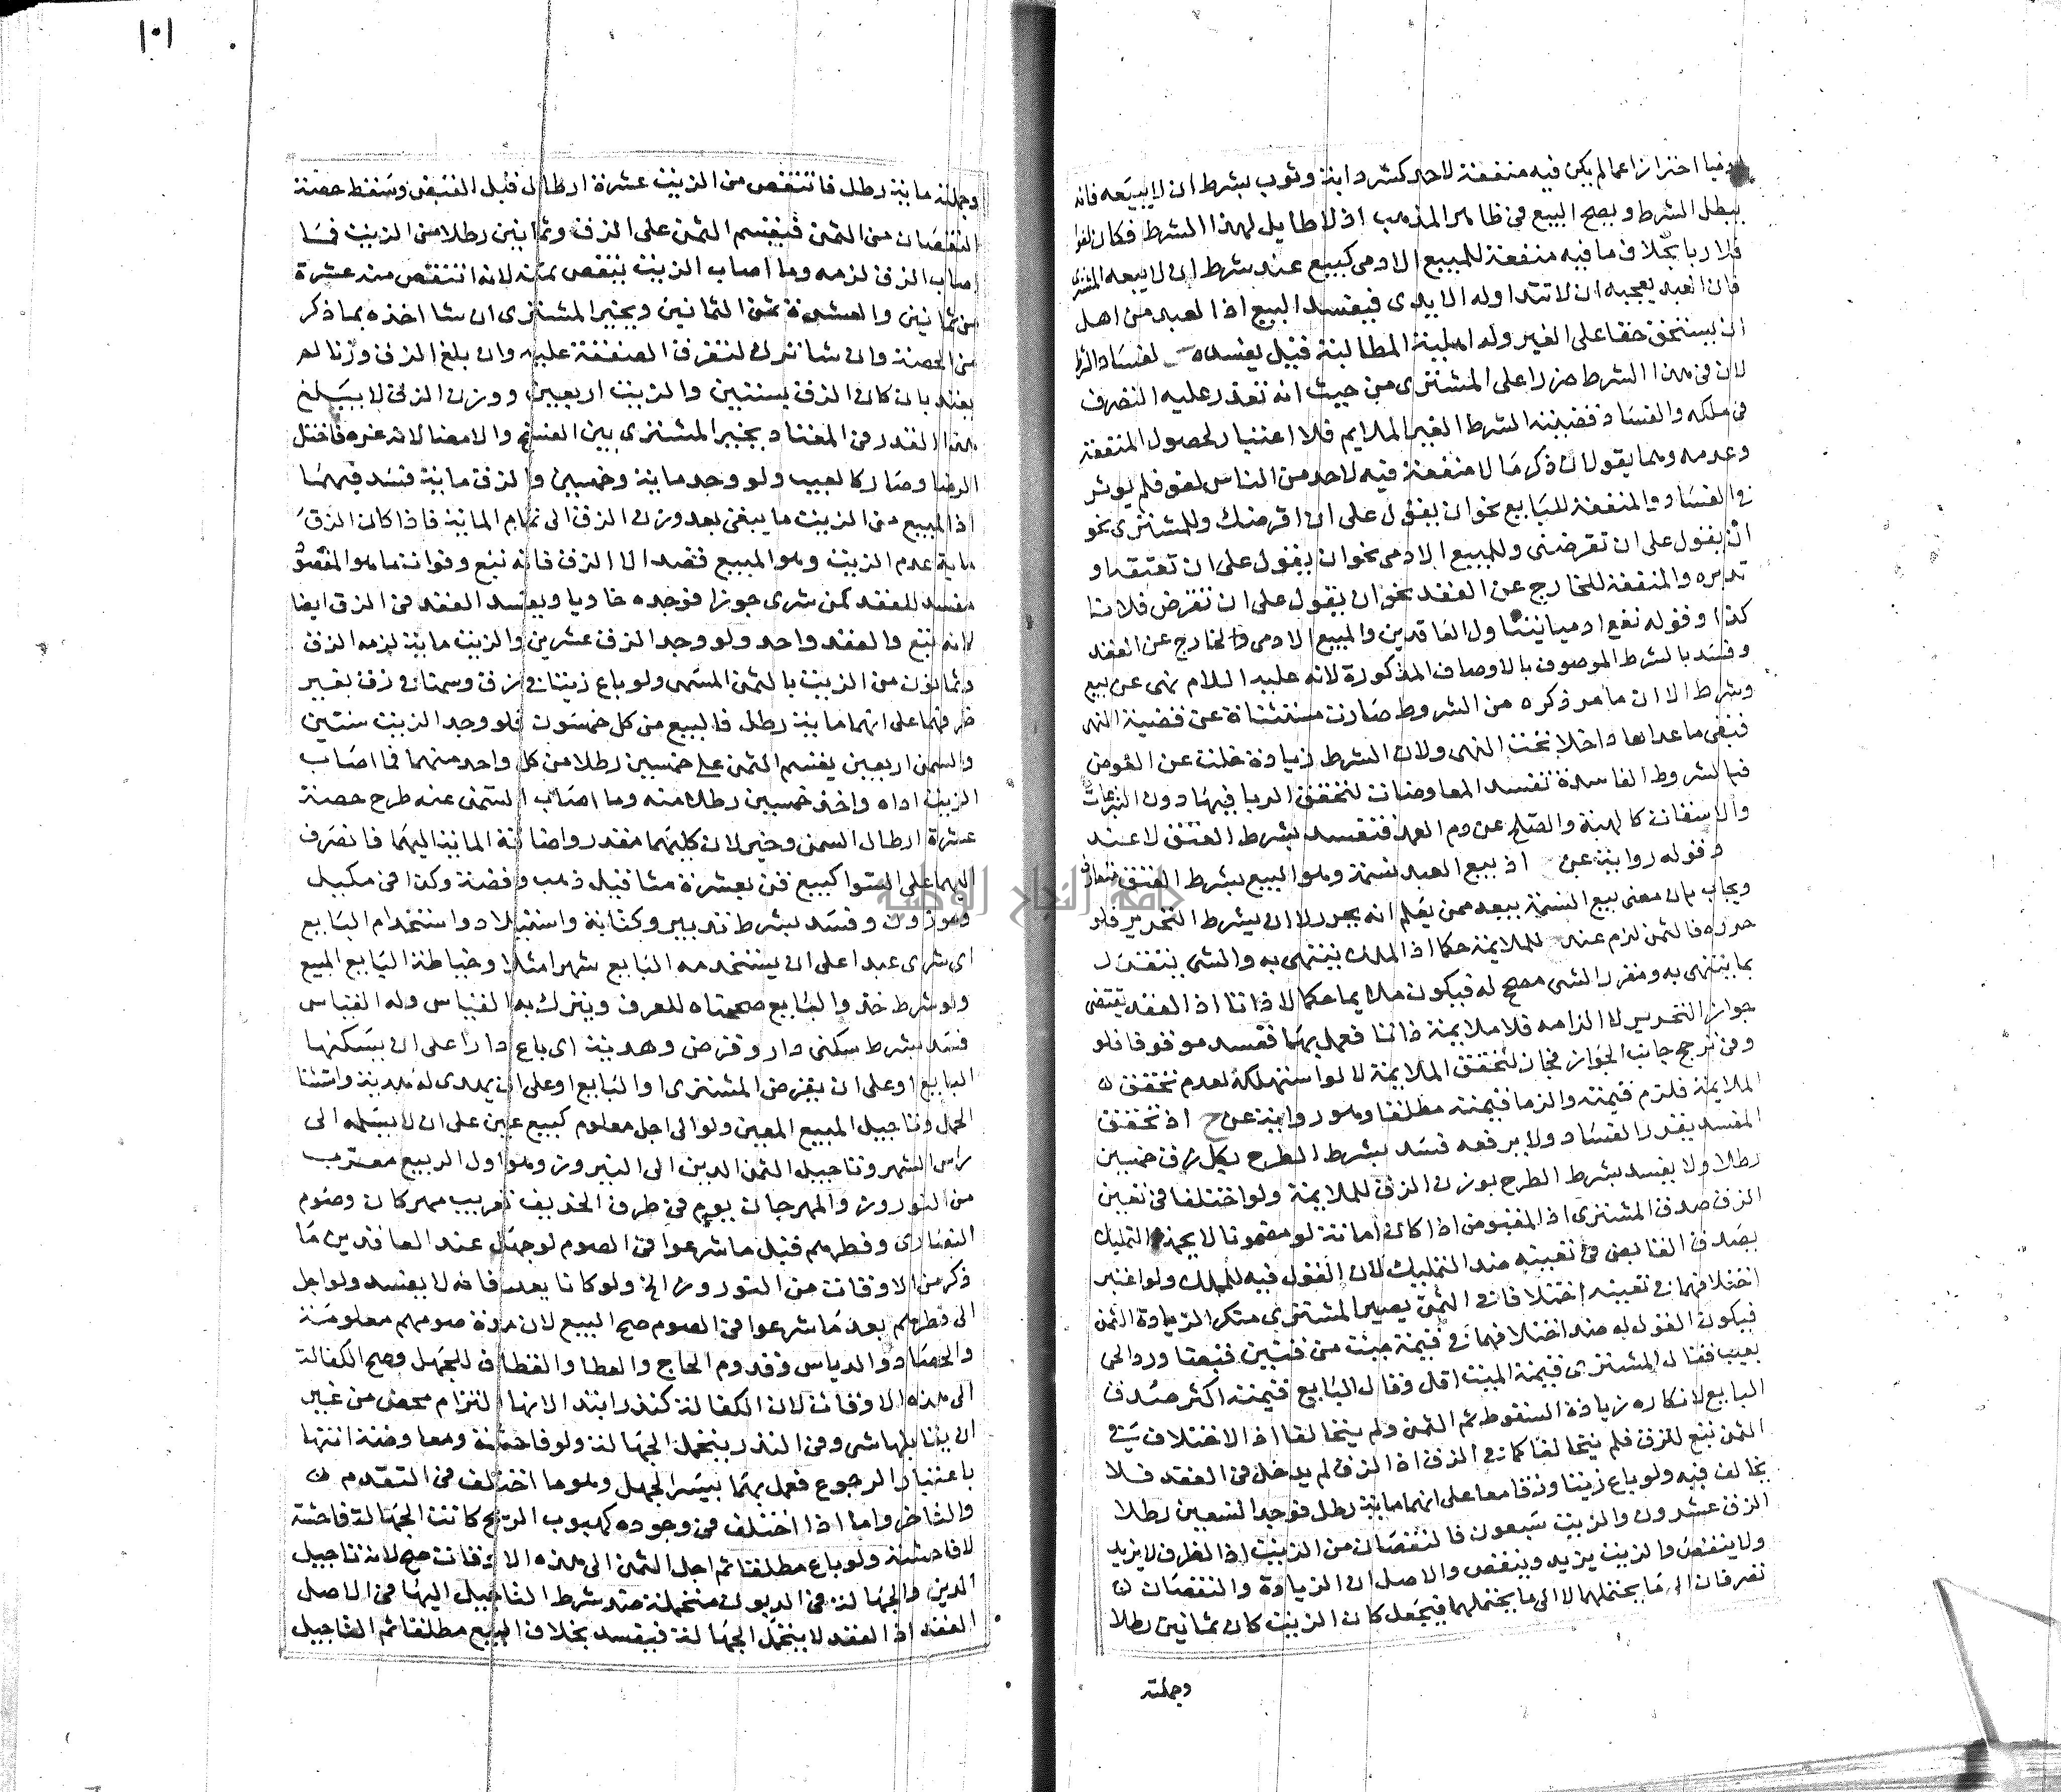 دميا احترازا عما لم يكن فيه منفعة لاحد كشرا دابة وثوب بشرط ان لا يبيعه فانه
يبطل الشرط ويصح البيع في ظاهر المذهب اذ لا طايل لهذا الشرط فكان لغوا
فلا ربا بخلاف ما فيه منفعة للمبيع الادمي كبيع عبد بشرط ان لا يبيعه المشترى
فان العبد يعجبه ان لا تتداوله الايدى فيفسد البيع اذ العبد من اهل
ان يستحق حقا على الغير وله اهلية المطالبة قيل يفسده لفساد الشرط
لان في هذا الشرط ضررا على المشترى من حيث انه تعذر عليه التصرف
في ملكه والفساد قضية الشرط الغير الملايم فلا اعتبار لحصول المنفعة
وعدمه وهما يقولان ذكر ما لا منفعة فيه لاحد من الناس لغو فلم يوثر
في الفساد والمنفعة للبايع نحو ان يقول على ان اقرضك وللمشترى نحو
ان يقول على ان تقرضنى وللمبيع الادمي نحو ان يقول على ان تعتقه او
تدبره والمنفعة للخارج عن العقد نحو ان يقول على ان تقرض فلانا
كذا وقوله نفع ادميا يتناول العاقدين والمبيع الادمي والخارج عن العقد
وفسد بالشرط الموصوف بالاوصاف المذكورة لانه عليه السلام نهى عن بيع
وشرط الا ان ما مر ذكره من الشروط صارت مستثناة عن قضية النهى
فبقى ما عداها داخلا تحت النهى ولان الشرط زيادة خلت عن العوض
فبالشروط الفاسدة تفسد المعاوضات لتحقق الربا فيها دون التبرعات
والاسقاط كالهبة والصلح عن دم العمد فتفسد بشرط العتق لا عند
وقوله رواية عن اذ بيع العبد نسمة وهو البيع بشرط العتق متعارف
ويجاب بان معنى بيع النسمة بيعه ممن يعلم انه يحرر لا ان يشرط التحرير فلو
حرره فالثمن لزم عند للملايمة حكما اذ الملك ينتهى به والشى يتقرر
بما ينتهى به ومقرر الشى مصحح له فيكون ملايما حكما لا ذاتا اذ العقد يقتضى
جواز التحرير لا الزامه فلا ملايمة ذاتا فعمل بهما ففسد موقوفا فلو
وفى ترجح جانب الجواز فجاز لتحقق الملايمة لا لو استهلكه لعدم تحقق
الملايمة فلزم قيمته والزما قيمته مطلقا وهو رواية عن ح اذ تحقق
المفسد يقرر الفساد ولا يرفعه فسد بشرط الطرح بكل زق خمسين
رطلا ولا يفسد بشرط الطرح بوزن الزق للملايمة ولو اختلفا في تعيين
الزق صدق المشترى اذ المقبوض اذا كان امانة لو مضمونا لا بجهة التمليك
يصدق القابض في تعيينه ضد التمليك لان القول فيه للمملك ولو اعتبر
اختلافهما في تعيينه اختلافا في الثمن يصير المشترى منكر الزيادة الثمن
فيكون القول له ضد اختلافهما في قيمة ميت من قنين قبضا ورد الحى
بعيب فقال المشترى قيمة الميت اقل وقال البايع قيمته اكثر صدق
البايع لانكاره زيادة السقوط ثم الثمن ولم يتحالفا اذ الاختلاف في
الثمن تبع للزق فلم يتحالفا كما في الزق اذ الزق لم يدخل في العقد فلا
يخالف فيه ولو باع زيتا وزقا معا على انهما ماية رطل فوجد التسعين رطلا
الزق عشرون والزيت سبعون فالنقصان من الزيت اذ الظرف لا يزيد
ولا ينقص والزيت يزيد وينقص والاصل ان الزيادة والنقصان
تصرفان الى ما يحتملهما لا الى ما يحتملهما فيجعل كان الزيت كان ثمانين رطلا
وجملته
١٠١
وجملته ماية رطل فانتقص من الزيت عشرة ارطال قبل القبض وسقط حصة
النقصان من الثمن فيقسم الثمن على الزق وثمانين رطلا من الزيت فما
اصاب الزق لزمه وما اصاب الزيت ينقص ثمنه لانه انتقص منه عشرة
من ثمانين والعشرة ثمن الثمانين ويخير المشترى ان شا اخذه بما ذكر
من الحصة وان شا ترك لتفرق الصفقة عليه وان بلغ الزق وزنا لم
يعتد بان كان الزق ستين والزيت اربعين ووزن الزق لا يبلغ
هذا القدر في المعتاد يخير المشترى بين الفسخ والامضا لانه غره فاختل
الرضا وصار كالعيب ولو وجد ماية وخمسين والزق ماية فسد فيهما
اذ المبيع من الزيت ما يبقى بعد وزن الزق الى تمام الماية فاذا كان الزق
ماية عدم الزيت وهو المبيع قصدا لا الزق فانه تبع وفوات ما هو المقصود
مفسد للعقد كمن شرى جوزا فوجده خاويا ويفسد العقد في الزق ايضا
لانه تبع والعقد واحد ولو وجد الزق عشرين والزيت ماية لزمه الزق
وثمانون من الزيت بالثمن المسمى ولو باع زيتا في زق وسمنا في زق بغير
ظرفهما على انهما ماية رطل فالبيع من كل خمسون فلو وجد الزيت ستين
والسمن اربعين يقسم الثمن على خمسين رطلا من كل واحد منهما فما اصاب
الزيت اداه واخذ خمسين رطلا منه وما اصاب السمن عنه طرح حصة
عشرة ارطال السمن وخير لان كليهما مقدر واضافة الماية اليهما فانصرف
اليهما على السوا كبيع قن بعشرة مثاقيل ذهب وفضة وكذا في مكيل
وموزون وفسد بشرط تدبير وكتابة واستيلاد واستخدام البايع
اى شرى عبدا على ان يستخدمه البايع شهرا مثلا وخياطة البايع المبيع
ولو شرط حذو البايع صححناه للعرف ويترك به القياس وله القياس
فسد بشرط سكنى دار وقرض وهدية اى باع دارا على ان يسكنها
البايع او على ان يقرض المشترى او البايع او على ان يهدى له هدية واستثنا
الحمل وتاجيل المبيع المعين ولو الى اجل معلوم كبيع عين على ان لا يسلمه الى
راس الشهر وتاجيل الثمن الدين الى النيروز وهو اول الربيع معرب
من النوروز والمهرجان يوم في طرف الخريف تعريب مهركان وصوم
النصارى وفطرهم قبل ما شرعوا في الصوم لو جهل عند العاقدين ما
ذكر من الاوقات من النوروز الخ ولو كانا يعلمانه لا يفسد ولو اجل
الى فطرهم بعد ما شرعوا في الصوم صح البيع لان مدة صومهم معلومة
والحصاد والدياس وقدوم الحاج والعطا والقطاف للجهل وصح الكفالة
الى هذه الاوقات لان الكفالة كنذر ابتدا لانها التزام محض من غير
ان يقابلها شى وفى النذر يتحمل الجهالة ولو فاحشة ومعاوضة انتها
باعتبار الرجوع فعمل بهما بيسير الجهل وهو ما اختلف في التقدم
والتاخر واما اذا اختلف في وجوده كهبوب الريح كانت الجهالة فاحشة
لا فاحشة ولو باع مطلقا ثم اجل الثمن الى هذه الاوقات صح لانه تاجيل
الدين والجهالة في الديون متحملة ضد شرط التاجيل اليها في الاصل
العقد اذ العقد لا يتحمل الجهالة فيفسد بخلاف البيع مطلقا ثم التاجيل
جامعة النجاح الوطنية